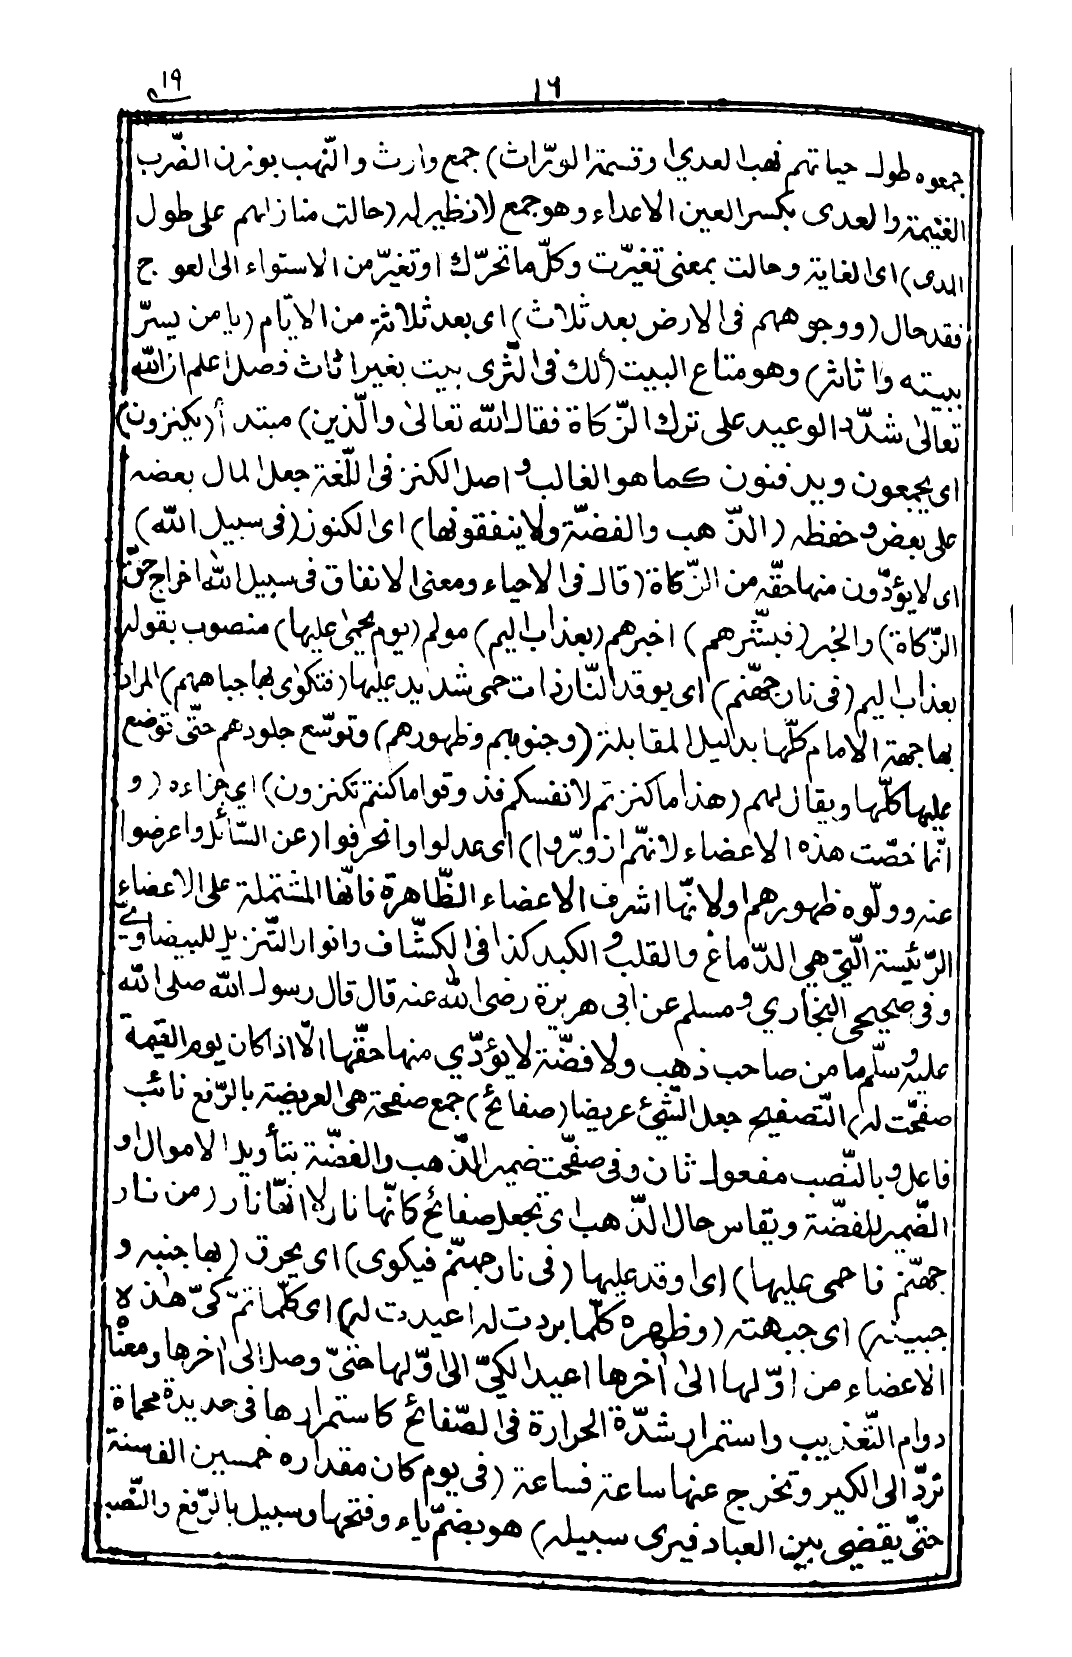 ١٩
١٦
جمعوه طول حياتهم نهب العدى وقسمة الورّاث) جمع وارث والنّهب بوزن الضّرب
الغنيمة والعدى بكسر العين الاعداء وهو جمع لا نظير له (حالت منازلهم على طول
المدى) اى الغاية وحالت بمعنى تغيّرت وكلّ ما تحرّك او تغيّر من الاستواء الى العوج
فقد حال (ووجوههم فى الارض بعد ثلاث) اى بعد ثلاثة من الايّام (يا من يسرّ
ببيته واثاثه) وهو متاع البيت (لك فى الثّرى بيت بغير اثاث فصل اعلم ان الله
تعالى شدّد الوعيد على ترك الزّكاة فقال الله تعالى والّذين) مبتدأ (يكنزون)
اى يجمعون ويدفنون كما هو الغالب و اصل الكنز فى اللّغة جعل المال بعضه
على بعض و حفظه (الذّهب والفضّة ولا ينفقونها) اى الكنوز (فى سبيل الله)
اى لا يؤدّون منها حقّه من الزّكاة (قال فى الاحياء ومعنى الانفاق فى سبيل الله اخراج حقّ
الزّكاة) والخبر (فبشّرهم) اخبرهم (بعذاب اليم) مولم (يوم يحمى عليها) منصوب بقوله
بعذاب اليم (فى نار جهنّم) اى يوقد النّار ذات حمى شديد عليها (فتكوى بها جباههم) المراد
بها جهة الامام كلّها بدليل المقابلة (وجنوبهم وظهورهم) وتوسّع جلودهم حتّى توضع
عليها كلّها ويقال لهم (هذا ما كنزتم لانفسكم فذوقوا ما كنتم تكنزون) اى جزاءه (و
انّما خصّت هذه الاعضاء لانّهم ازورّوا) اى عدلوا وانحرفوا (عن السّائل واعرضوا
عنه وولّوه ظهورهم او لانّها اشرف الاعضاء الظّاهرة فانّها المشتملة على الاعضاء
الرّئيسة الّتى هى الدّماغ و القلب و الكبد كذا فى الكشّاف وانوار التّنزيل للبيضاويّ
وفى صحيحى البخاري و مسلم عن ابى هريرة رضى الله عنه قال قال رسول الله صلى الله
عليه و سلّم ما من صاحب ذهب ولا فضّة لا يؤدّي منها حقّها الّا اذا كان يوم القيمة
صفّحت له) التّصفيح جعل الشّئ عريضا (صفائح) جمع صفيحة هى العريضة بالرّفع نائب
فاعل و بالنّصب مفعول ثان وفى صفّحت ضمير الذّهب والفضّة بتأويل الاموال او
الضّمير للفضّة ويقاس حال الذّهب اى تجعل صفائح كانّها نار لا انّها نار (من نار
جهنّم فاحمى عليها) اى اوقد عليها (فى نار جهنّم فيكوى) اى يحرق (بها جنبه و
جبينه) اى جبهته (وظهره كلّما بردت له اعيدت له) اى كلّما تمّ كىّ هذه
الاعضاء من اوّلها الى اخرها اعيد الكىّ الى اوّلها حتىّ وصل الى اخرها ومعناه
دوام التّعذيب واستمرار شدّة الحرارة فى الصّفائح كاستمرارها فى حديدة محماة
تردّ الى الكير وتخرج عنها ساعة فساعة (فى يوم كان مقداره خمسين الف سنة
حتىّ يقضى بين العباد فيرى سبيله) هو بضمّ ياء وفتحها وسبيل بالرّفع والنّصب